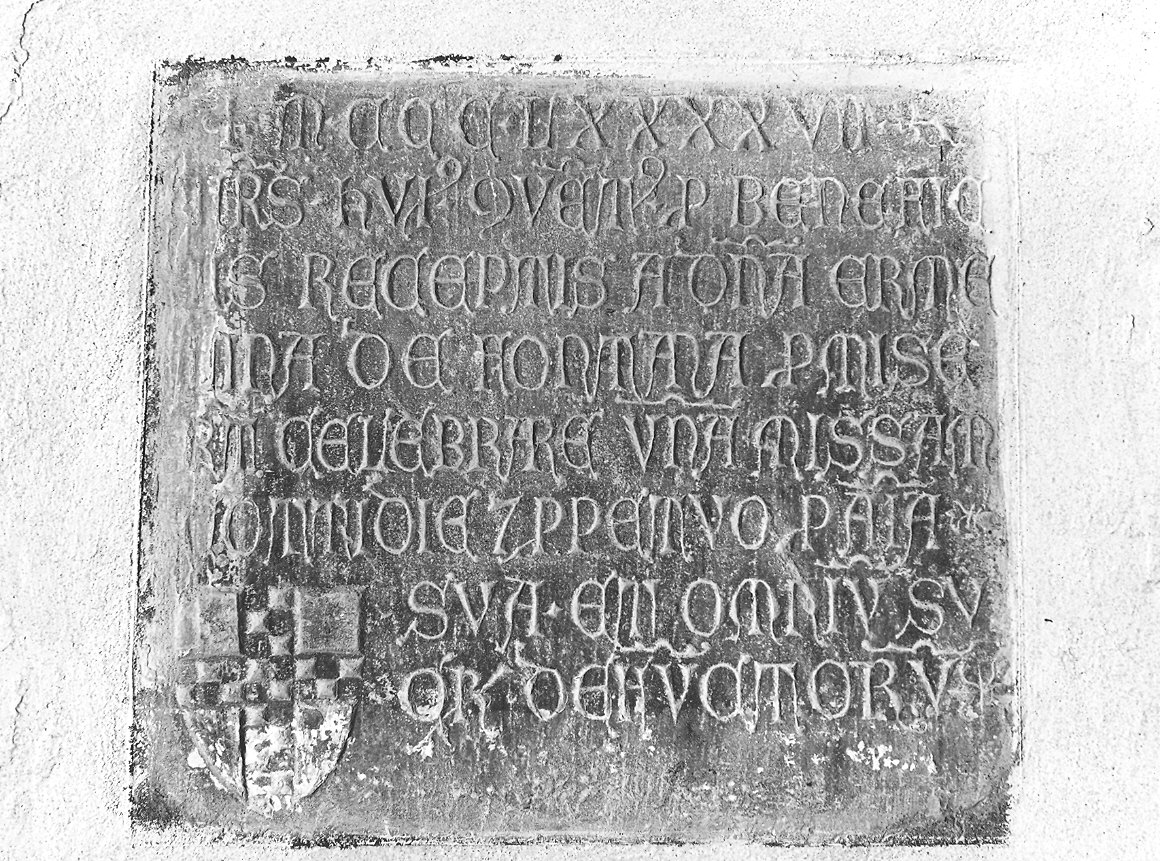 M CCC LXXXXVII · F
RS · HVIꝰ ꝯVETꝰ P BENEFICI
IS RECEPTIS A DNA ERME
INA DE FONTANA PMISE
RT CELEBRARE VNA MISSAM
COTTIDIE 7 PPETVO P AIA
SVA · ET OMNIV SV
OR · DEFVCTORV